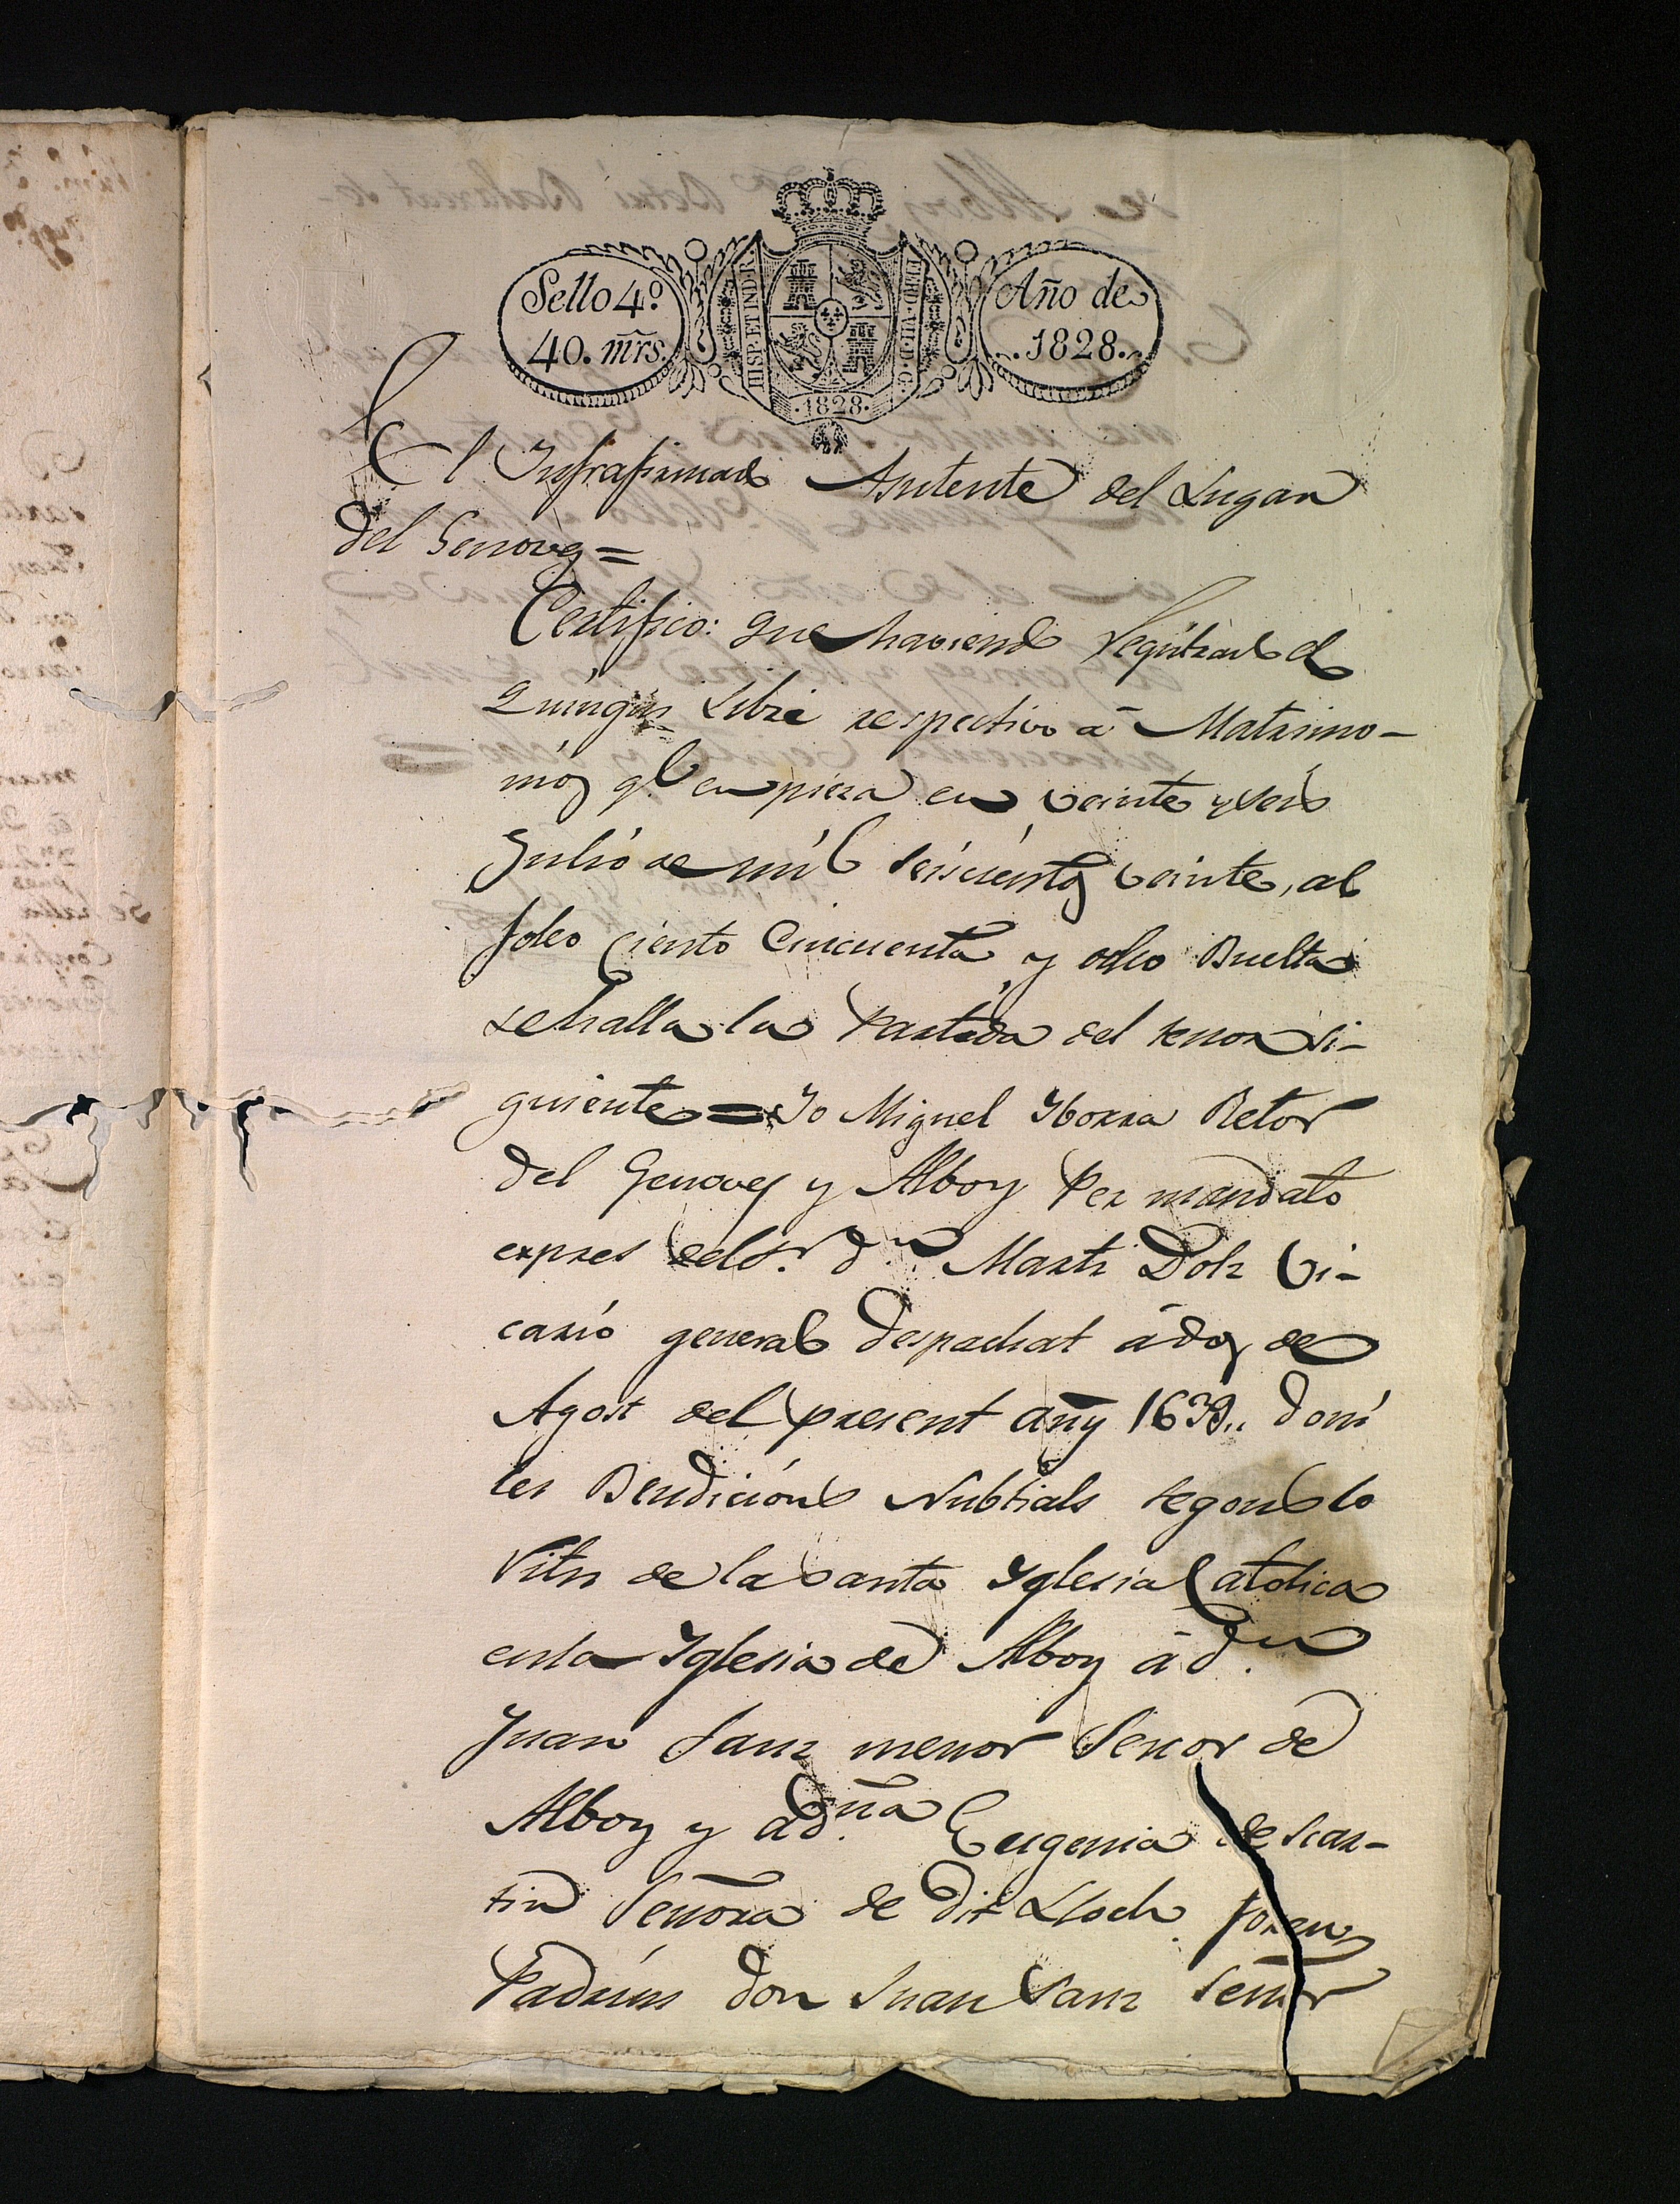 Sello 4.º
40. mrs.
HISP. ET IND. R.
FERD. VII. D. G.
.1828.
Año de
.1828.
El Infrafirmado Asutente del Lugar
del Genoves =
Certifico: que haviendo Regístrado el
Quinque Libri respectivo á Matrimo-
nios qe. enpieza en veinte y seis
Julió de mil Seiscientos veinte, al
foleo ciento Cincuenta y ocho Buelta
se halla la Partida del tenor si-
guiente = Yo Miguel Yborra Retor
del Genoves y Alboy Per mandato
expres del Sr. Dn. Marti Dolz Vi-
carió general despachat á dos de
Agost del present añy 1639.. doní
les Bendicións Nubtials segons lo
Ritu de la Santa Yglesia Catolica
en la Yglesia de Alboy á Dn.
Juan Sanz menor Senor de
Alboy y á Dña. Eugenia de Scar-
tin Señora de dit Lloch. foren
Padrins don Juan Sanz Señor